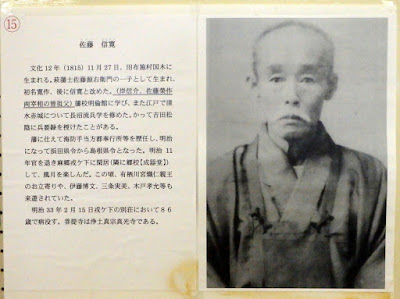 ⑮
佐藤 信寛
文化12年(1815)11月27日、田布施村国木に
生まれる。萩藩士佐藤源右衛門の一子として生まれ、
初名寛作、後に信寛と改めた。(岸信介、佐藤榮作
両宰相の曽祖父)藩校明倫館に学び、また江戸で清
水赤城について長沼流兵学を修めた。かって吉田松
陰に兵要録を授けたことがある。
藩に仕えて海防手当方郡奉行所等を歴任し、明治
になって浜田県令から島根県令となった。明治11
年官を退き麻郷戎ケ下に閑居(隣に郷校【成器堂】)
して、風月を楽しんだ。この頃、有栖川宮熾仁親王
のお立寄りや、伊藤博文、三条実美、木戸孝允等も
来遊されていた。
明治33年2月15日戎ケ下の別荘において86
歳で病没す。菩提寺は浄土真宗真光寺である。